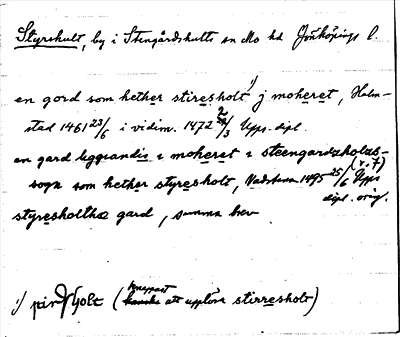 Styrshult, by i Stengårdshults sn Mo hd Jönköpings l.
en gord som hether stiresholt 1) j moheret, Halm-
stad 1461 23/6 i vidim. 1472 2/3 Upps. dipl.
en gard liggiandis i moheret i steengardzholds-
sogn som hether styresholt, Vadstena 1495 25/6 (v. 7) Upps
dipl. orig.
styresholtha gard, samma brev
1) stirsholt (knappast att upplösa stirresholt)